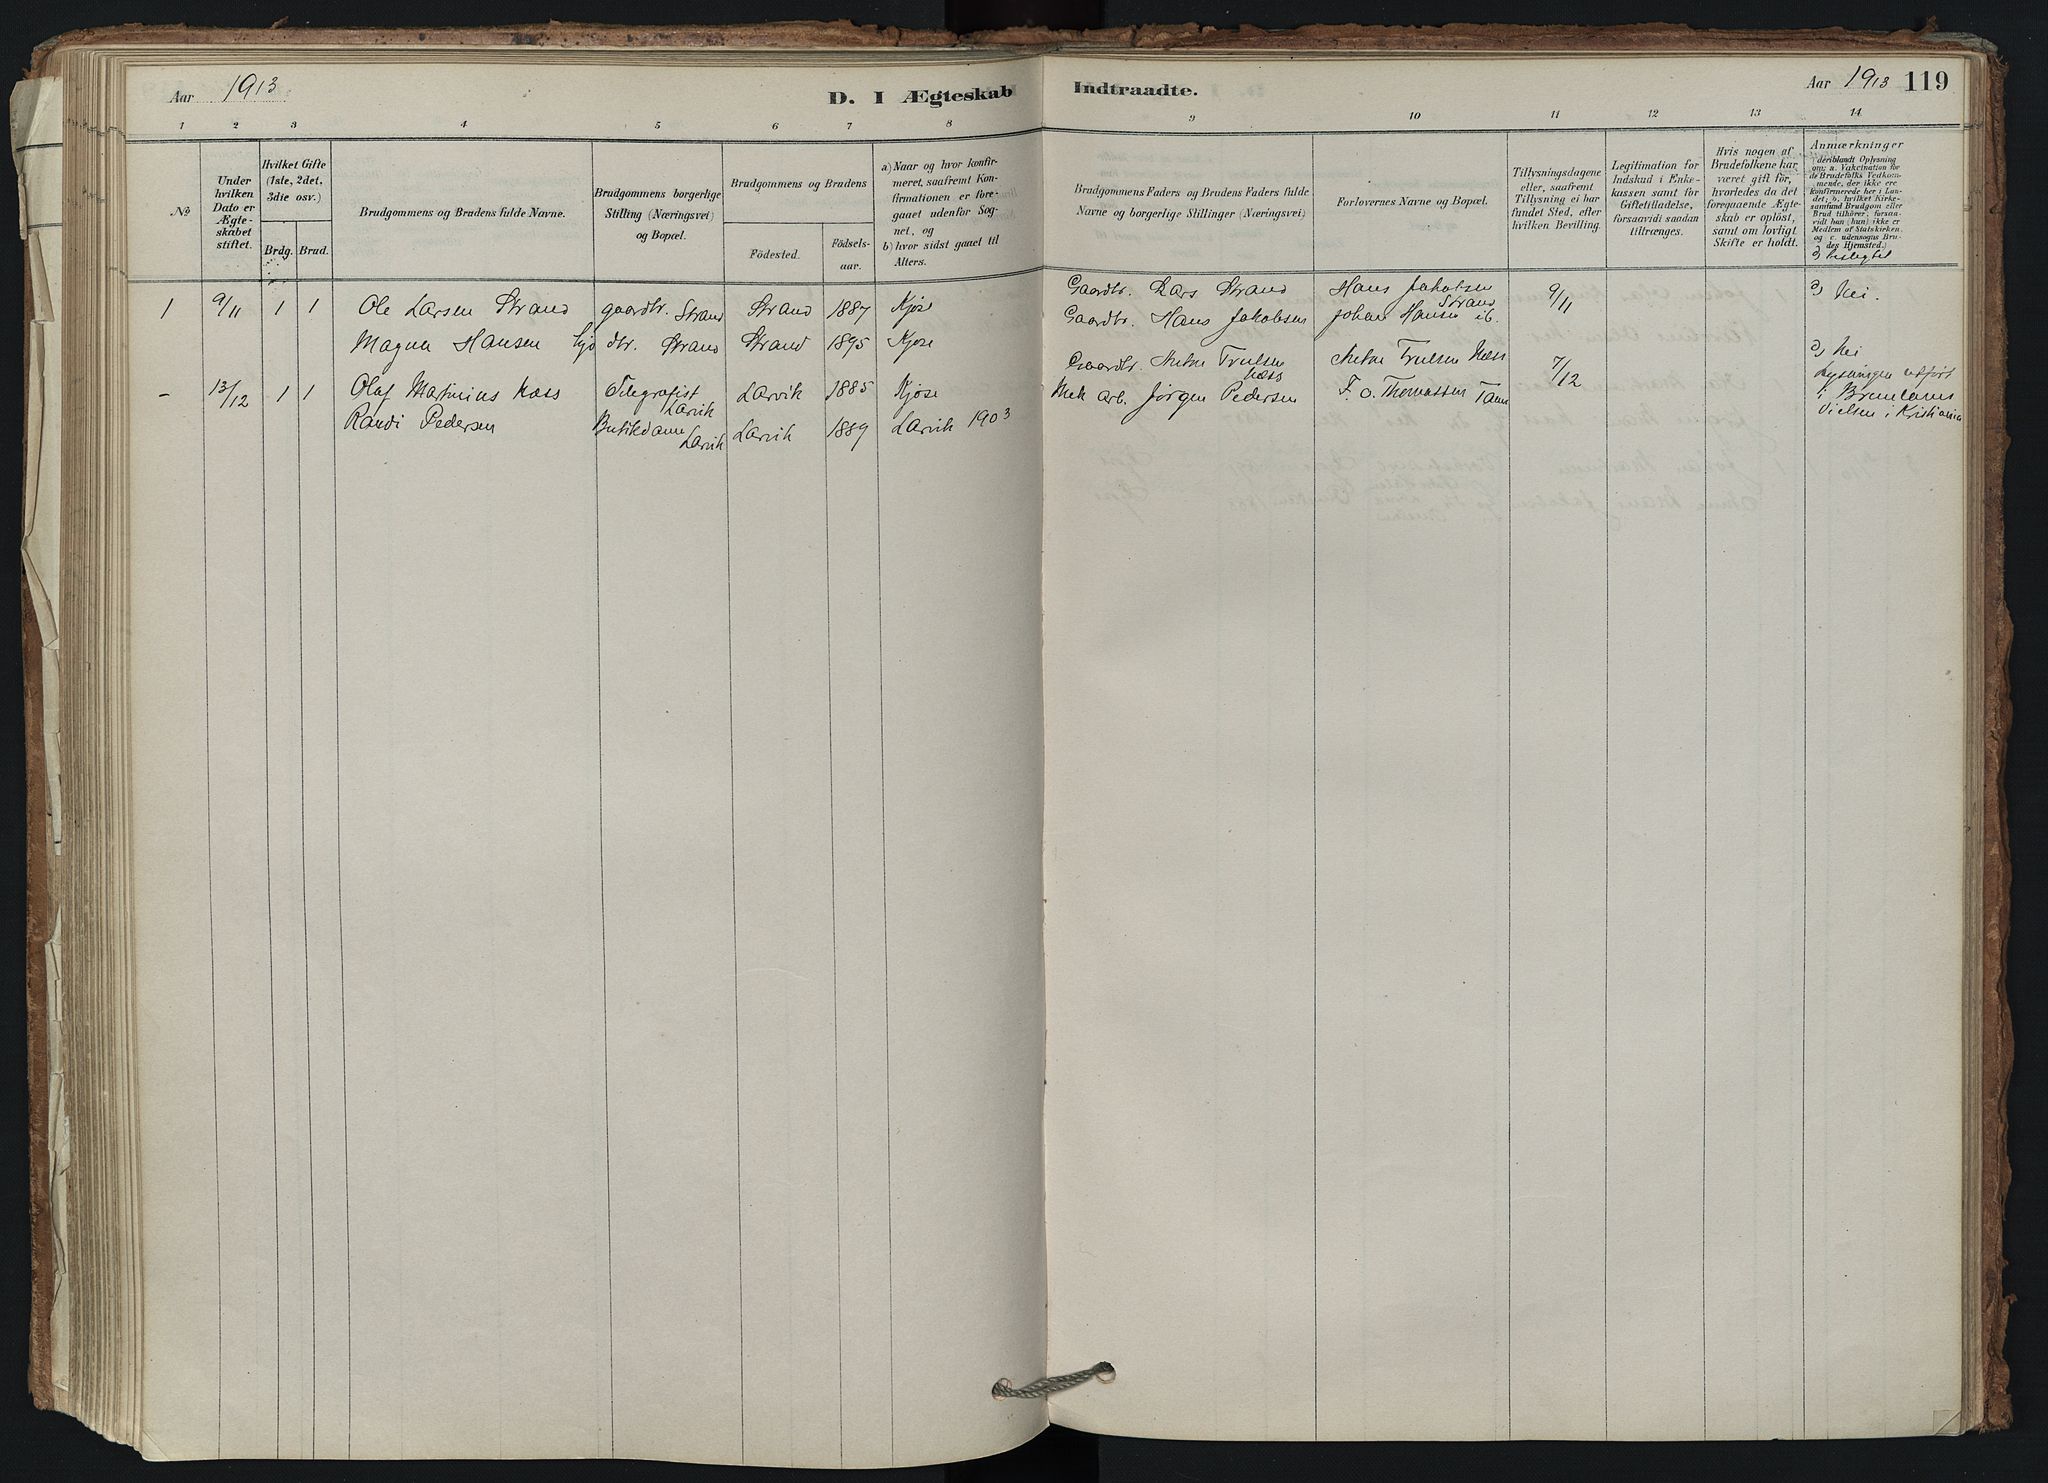 Aar 1913.
D. I Ægteskab
Indtraadte.
Aar 1913 119
1 2 3 4 5 6 7 8 9 10 11 12 13 14
No
Under hvilken Dato er Ægte-skabet stiftet.
Hvilket Gifte (1ste, 2det, 3die osv.)
Brdg. Brud.
Brudgommens og Brudens fulde Navne.
Brudgommens borgerlige
Stilling (Næringsvei)
og Bopæl.
Brudgommens og Brudens
Födested.
Födsels-
aar.
a) Naar og hvor konfir-
meret, saafremt Kon-
firmationen er fore-
gaaet udenfor Sog-
net, og
b) hvor sidst gaaet til
Alters.
Brudgommens Faders og Brudens Faders fulde
Navne og borgerlige Stillinger (Næringsvei)
Forlovernes Navne og Bopæl.
Tillysningsdagene
eller, saafremt
Tillysning ei har
fundet Sted, efter
hvilken Bevilling.
Legitimation for
Indskud i Enke-
kassen samt for
Giftetilladelse,
forsaavidt saadan
tiltrænges.
Hvis nogen af
Brudefolkene har
været gift för,
hvorledes da det
foregaaende Ægte-
skab er oplöst,
samt om lovligt
Skifte er holdt.
Anmærkninger
(deriblandt Oplysning
om: a. Vakcination for
de Brudefolks Vedkom-
mende, der ikke ere
konfirmerede her i Lan-
det; b. hvilket Kirke-
samfund Brudgom eller
Brud tilhörer, forsaa-
vidt han (hun) ikke er
Medlem af Statskirken,
og c. udensogns Bru-
des Hjemsted.)
1 9/11 1 1 Ole Larsen Strand gaardbr. Strand Strand 1887 Kjose Gaardbr. Lars Strand Hans Jakobsen Strand 9/11 Nei.
Magna Hansen Strand Strand 1895 Kjose Gaardbr. Hans Jakobsen Johan Hansen ib.
- 13/12 1 1 Olaf Martinius Næss Telegrafist Larvik Larvik 1885 Kjose Gaardbr. Anton Trulsen Næss Anton Trulsen Næss 7/12 Nei
Randi Pedersen Butikdame Larvik Larvik 1889 Larvik 1903 Mek arb. Jörgen Pedersen F. O. Thomassen
Lysningen utfört
i Brunlanes
Vielsen i Kristiania